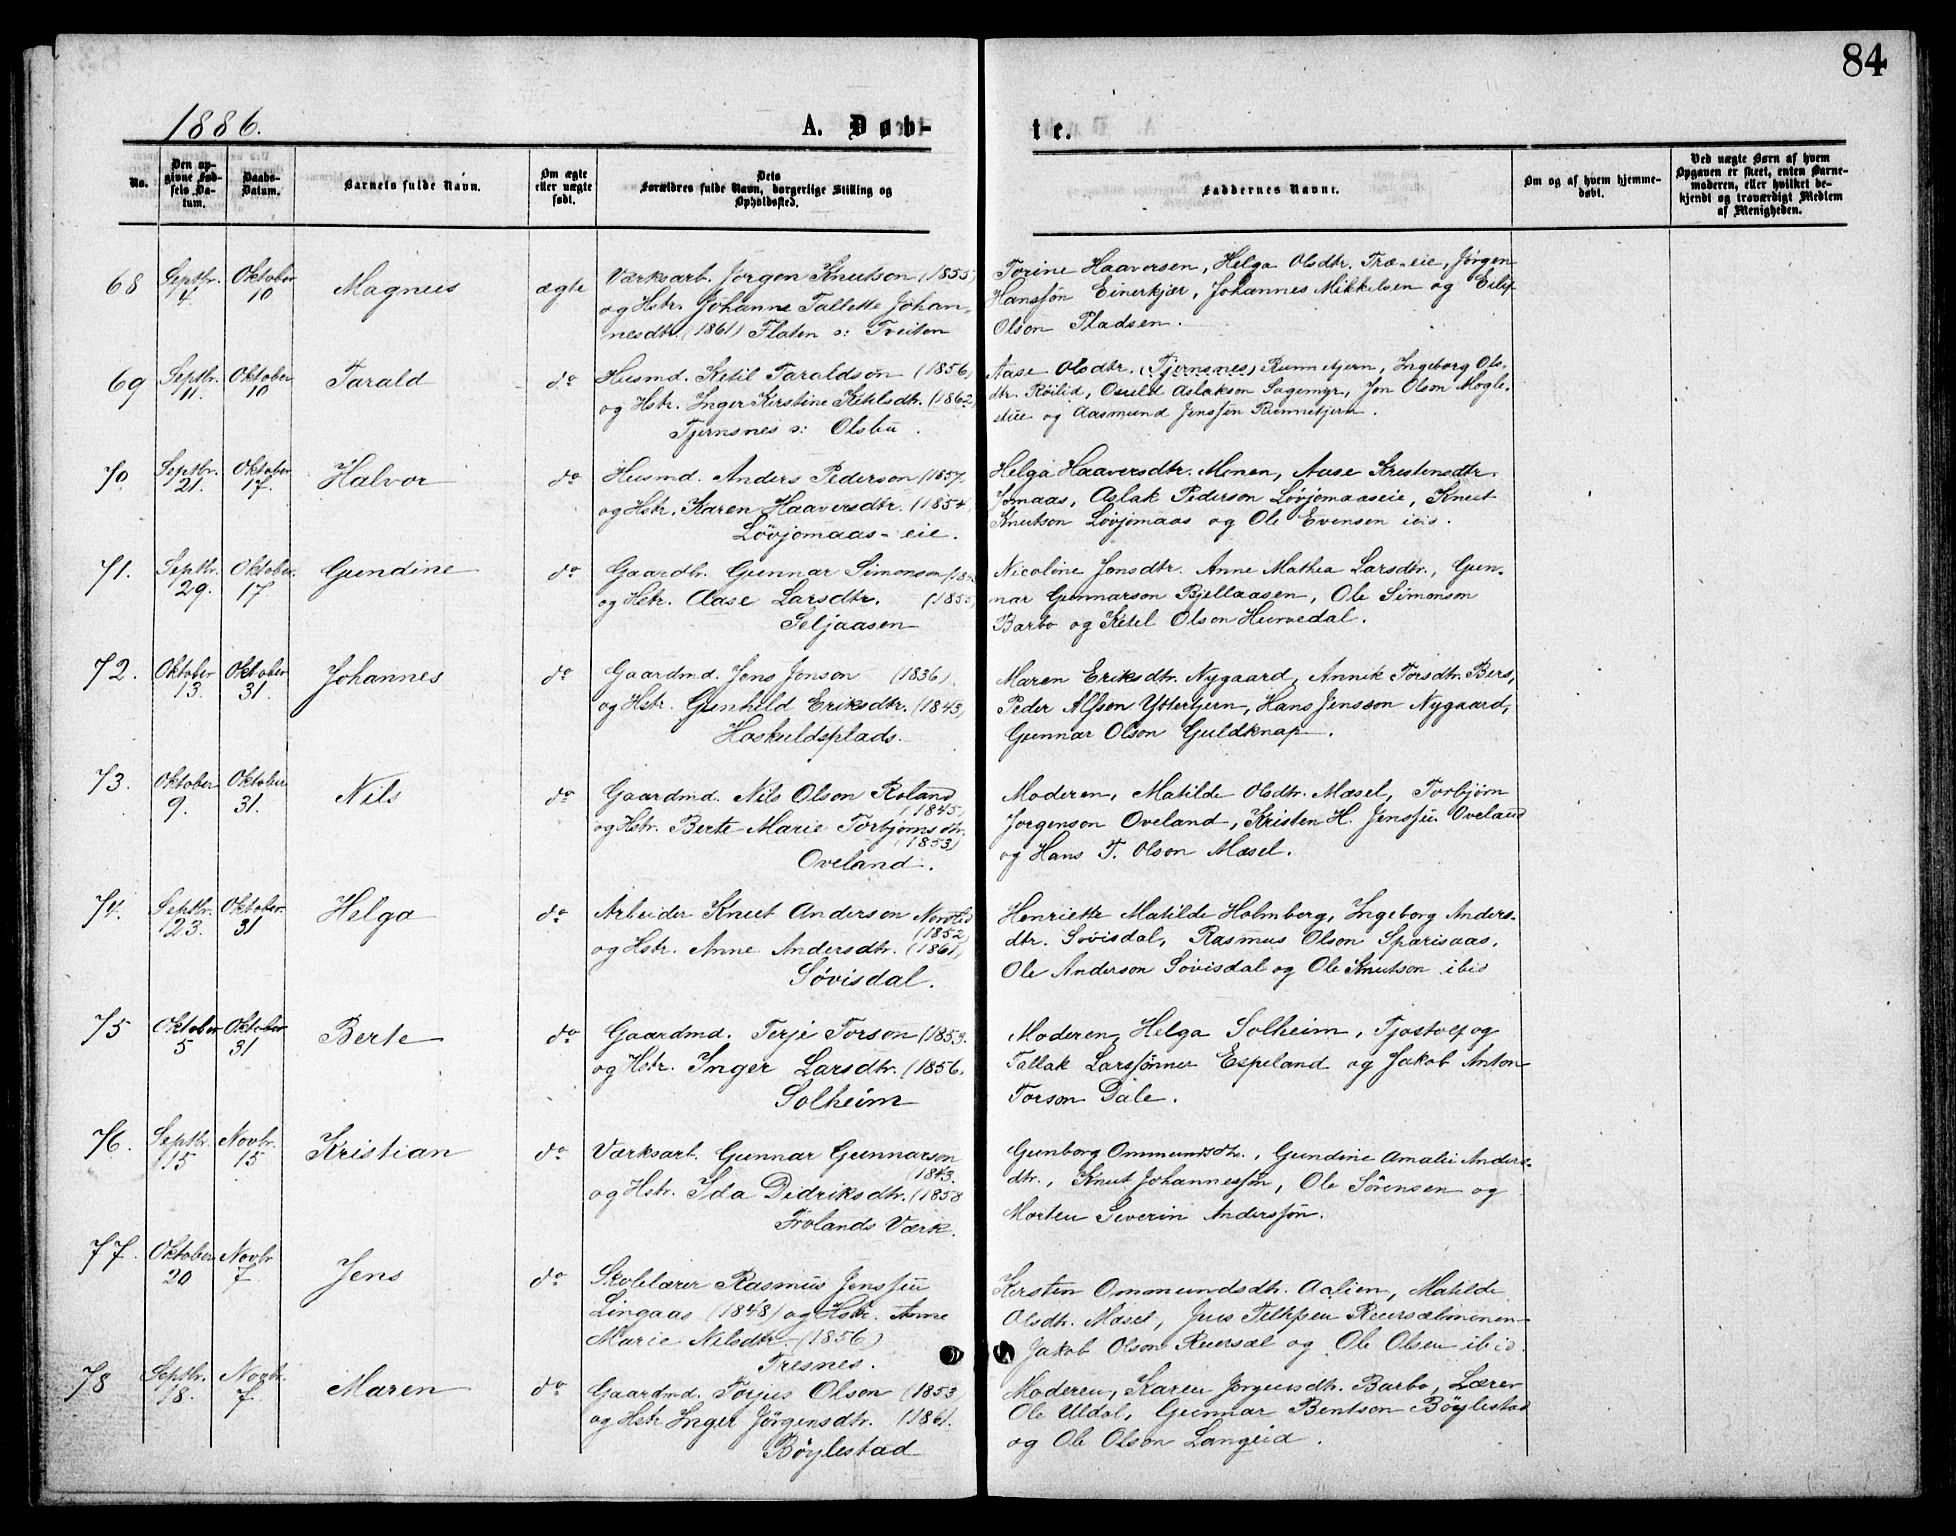 84
1886.
A. Døb-
te.
No.
Den op-
givne Fød-
sels-Da-
tum.
Daabs-
Datum.
Barnets fulde Navn.
Om ægte
eller uægte
født.
Dets
Forældres fulde Navn, borgerlige Stilling og
Opholdssted.
Faddernes Navne.
Om og af hvem hjemme-
døbt.
Ved uægte Børn af hvem
Opgaven er skeet, enten Barne-
moderen, eller hvilket be-
kjendt og troværdigt Medlem
af Menigheden.
68
Septbr.
4
Oktober
10
Magnus
ægte
Værksarb. Jørgen Knutson (1855)
og Hstr. Johanne Tallette Johan-
nesdtr. (1861) Flaten s: Tveiten
Torine Haaversen, Helga Olsdtr. Træ-eie, Jørgen
Hanssøn Einerkjær, Johannes Mikkelsen og Eilif
Olson Pladsen.
69
Septbr.
11.
Oktober
10
Tarald
do
Husmd. Ketil Taraldsøn (1856)
og Hstr. Inger Kerstine Ketilsdtr. (1862)
Tjernsnes s: Olsbu.
Aase Olsdtr. (Tjernsnes) Runnetjern, Ingeborg Ols-
dtr. Røilid, Osuld Aslakson Sagemyr, Jon Olson Mogle-
stue og Aasmund Jenssøn Runnetjern.
70
Septbr.
21.
Oktober
17.
Halvor
do
Husmd. Anders Pederson (1857.
og Hstr. Karen Haaversdtr. (1854)
Løvjomaas-eie.
Helga Haaversdtr. Monen, Aase Kristensdtr.
Jomaas, Aslak Pederson Løvjomaaseie, Knut
Knutson Løvjomaas og Ole Evensen ibis.
71.
Septbr.
29.
Oktober.
17
Gundine
do
Gaardbr. Gunnar Simonson
og Hstr. Aase Larsdtr. (1855)
Seljaasen
Nicoline Jonsdtr. Anne Mathea Larsdtr., Gun-
nar Gunnarson Bjellaasen, Ole Simonson
Barbo og Ketil Olson Hurvedal.
72.
Oktober
13.
Oktober
31.
Johannes
do
Gaardmd. Jens Jonson (1836).
og Hstr. Gunhild Eriksdtr. (1843)
Haskuldsplads.
Maren Eriksdtr. Nygaard, Annik Torsdtr. Bers,
Peder Alfson Yttertjern, Hans Jensson Nygaard,
Gunnar Olson Guldknap.
73.
Oktober
9.
Oktober
31.
Nils
do
Gaardmd. Nils Olson Roland
(1845)
og Hstr. Berte Marie Torbjørnsdtr.
(1853)
Oveland.
Moderen, Matilde Olsdtr. Mæsel, Torbjørn
Jørgenson Oveland, Kristen H. Jenssøn Oveland
og Hans T. Olson Mæsel.
74.
Septbr.
23.
Oktober.
31
Helga
do
Arbeider Knut Anderson
(1852)
og Hstr. Anne Andersdtr. (1861)
Søvisdal.
Henriette Matilde Holmberg, Ingeborg Anders-
dtr. Søvisdal, Rasmus Olson Sparisaas,
Ole Anderson Søvisdal og Ole Knutson ibid
75
Oktober
5
Oktober
31
Berte
do
Gaardmd. Terje Torson (1853.
og Hstr. Inger Larsdtr. (1856.
Solheim
Moderen, Helga Solheim, Tjostolf og
Tallak Larssønner Espeland og Jakob Anton
Torson Dale.
76.
Septbr.
15
Novbr.
15
Kristian
do
Værksarb. Gunnar Gunnarson
1843.
og Hstr. Ida Didriksdtr. (1858
Frolands Værk.
Gunborg Ommundsdtr., Gundine Amalie Anders-
dtr., Knut Johannessøn, Ole Sørensen og
Morten Severin Anderssøn.
77.
Oktober
20
Novbr
7.
Jens
do
Skolelærer Rasmus Jenssøn
Lingaas (1848) og Hstr. Anne
Marie Nilsdtr. (1856)
Tresnes.
Kersten Ommundsdtr. Aalien, Matilde
Olsdtr. Mæsel, Jens Reiersælmonen
Jakob Olson Reiersæl og Ole Olsen ibid.
78
Septbr.
18.
Novbr.
7.
Maren
do
Gaardmd. Torjus Olson (1853)
og Hstr Inger Jørgensdtr. (1861.
Bøylestad
Moderen, Karen Jørgensdtr. Barbo, Lærer
Ole Uldal, Gunnar Bentson Bøylestad
og Ole Olson Langeid.